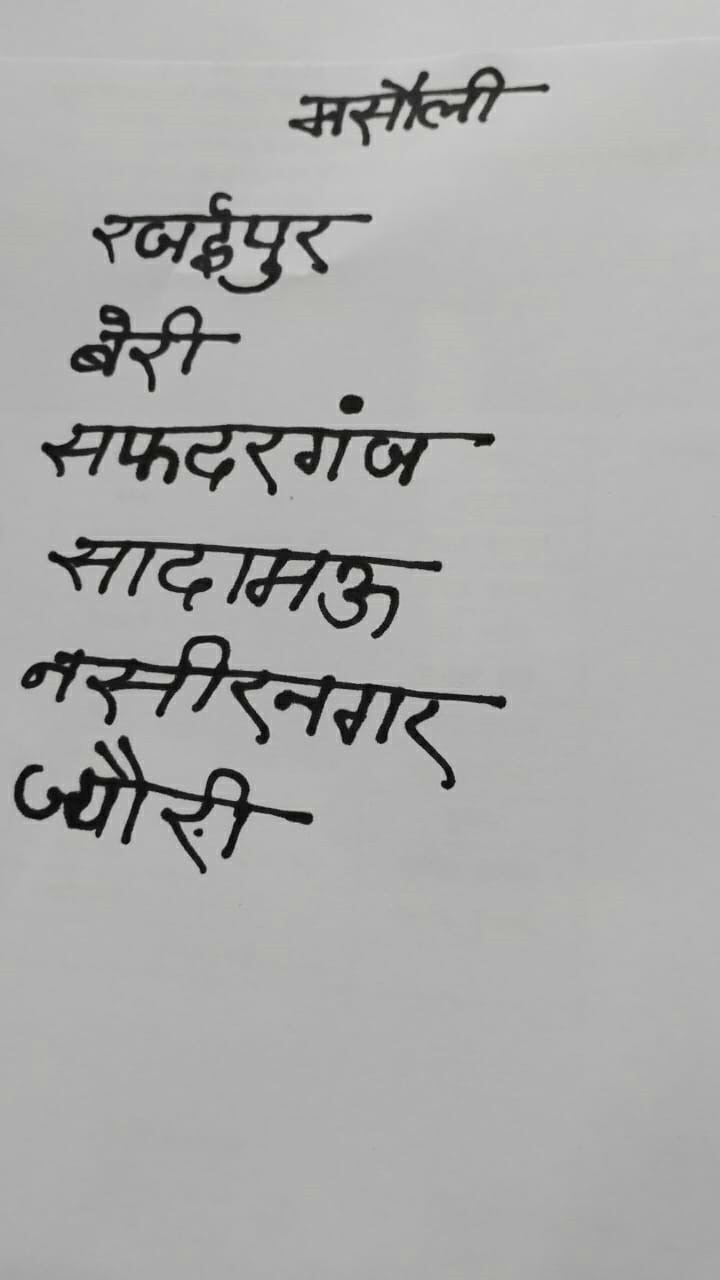 मसौली
रजईपुर
बेरी
सफदरगंज
सादामऊ
नसीरनगर
ज्यौरी